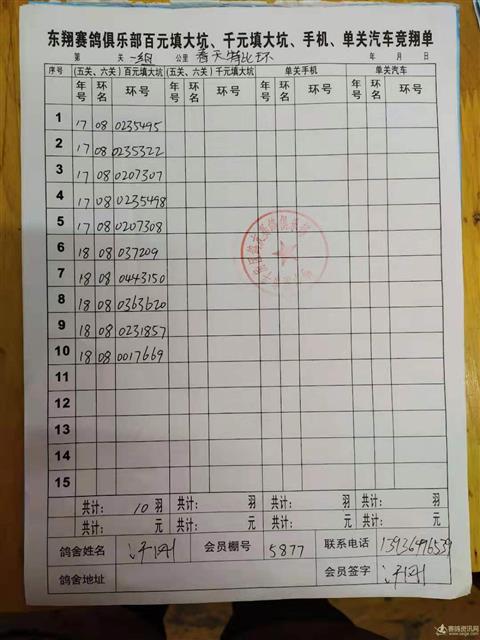 东翔赛鸽俱乐部百元填大坑、千元填大坑、手机、单关汽车竞翔单
第 关 一组 公里 春天特比环 年 月 日
序号 (五关、六关)百元填大坑 (五关、六关)千元填大坑 单关手机 单关汽车
年号 环名 环号 年号 环名 环号 年号 环名 环号 年号 环名 环号
1 17 08 0235495
2 17 08 0235322
3 17 08 0207307
4 17 08 0235498
5 17 08 0207308
6 18 08 037209
7 18 08 0443150
8 18 08 0363620
9 18 08 0231857
10 18 08 0017669
11
12
13
14
15
共计: 10 羽 共计: 羽 共计: 羽 共计: 羽
共计: 元 共计: 元 共计: 元 共计: 元
鸽舍姓名 会员棚号 5877 联系电话 13936496539
鸽舍地址 会员签字
赛鸽资讯网